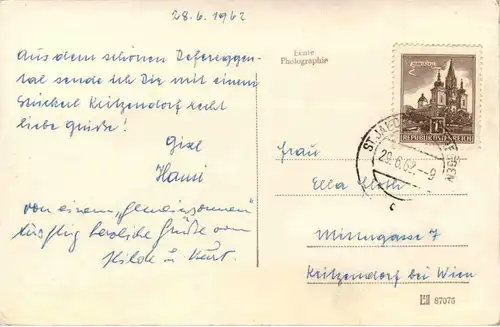 28.6.1962
Aus dem schönen Defereggen-
tal sende ich Dir mit einem
Stückerl Kritzendorf recht
liebe Grüße!
Gisl
Hanni
von einem „Gemeinsamen"
Ausflug herzliche Grüße von
Hilde u. Kurt.
Echte
Photographie
REPUBLIK ÖSTERREICH
ST. JAKOB
29.6.62.-9
c
Frau
Ella
Mittergasse 7
Kritzendorf bei Wien
87075